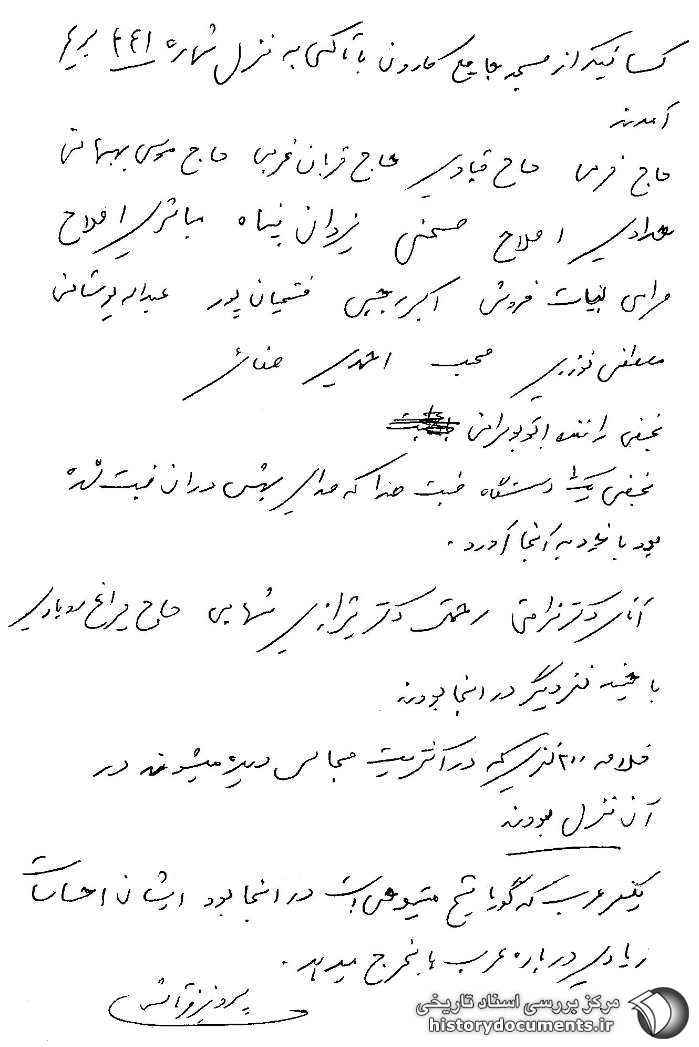 کسانیکه از مسجد جامع کارون با تاکسی به منزل شماره ۲۴۱ بریم
آمدند
حاج خرمی حاج قبادی حاج قربان غربی حاج موسی بهبهانی
اصلاح صحنی یزدان پناه مباشری اصلاح
لبنیات فروش اکبر رجبی فتحیان پور عبداله پوشانی
مصطفی نوذری محب احمدی صفائی
نجفی راننده اتوبوسرانی
نجفی یک دستگاه ضبت صدا که صدای بهش در آن ضبت شده
بود با خود به آنجا آورد.
آقای دکتر کرامتی رحمتی دکتر شیرازی شهابی حاج چراغ رودباری
با چند نفر دیگر در آنجا بودند
خلاصه ۲۰۰ نفری که در اکثریت مجالس دیده میشوند در
آن منزل بودند
یکنفر عرب که گویا شیخ است در آنجا بود ایشان احساسات
زیادی درباره عرب ها بخرج میداد.
پرویز
مرکز بررسی اسناد تاریخی
historydocuments.ir